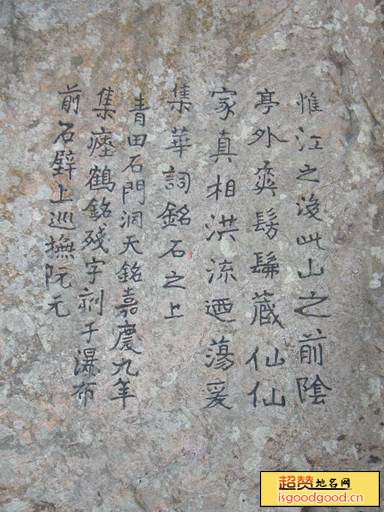 惟江之淙此山之前陰
亭外爽髣髴藏仙仙
家真相洪流迺蕩爰
集華詞銘石之上
青田石門洞天銘嘉慶九年
集瘞鶴銘殘字刻于瀑布
前石壁上巡撫阮元
超赞地名网
isgoodgood.cn